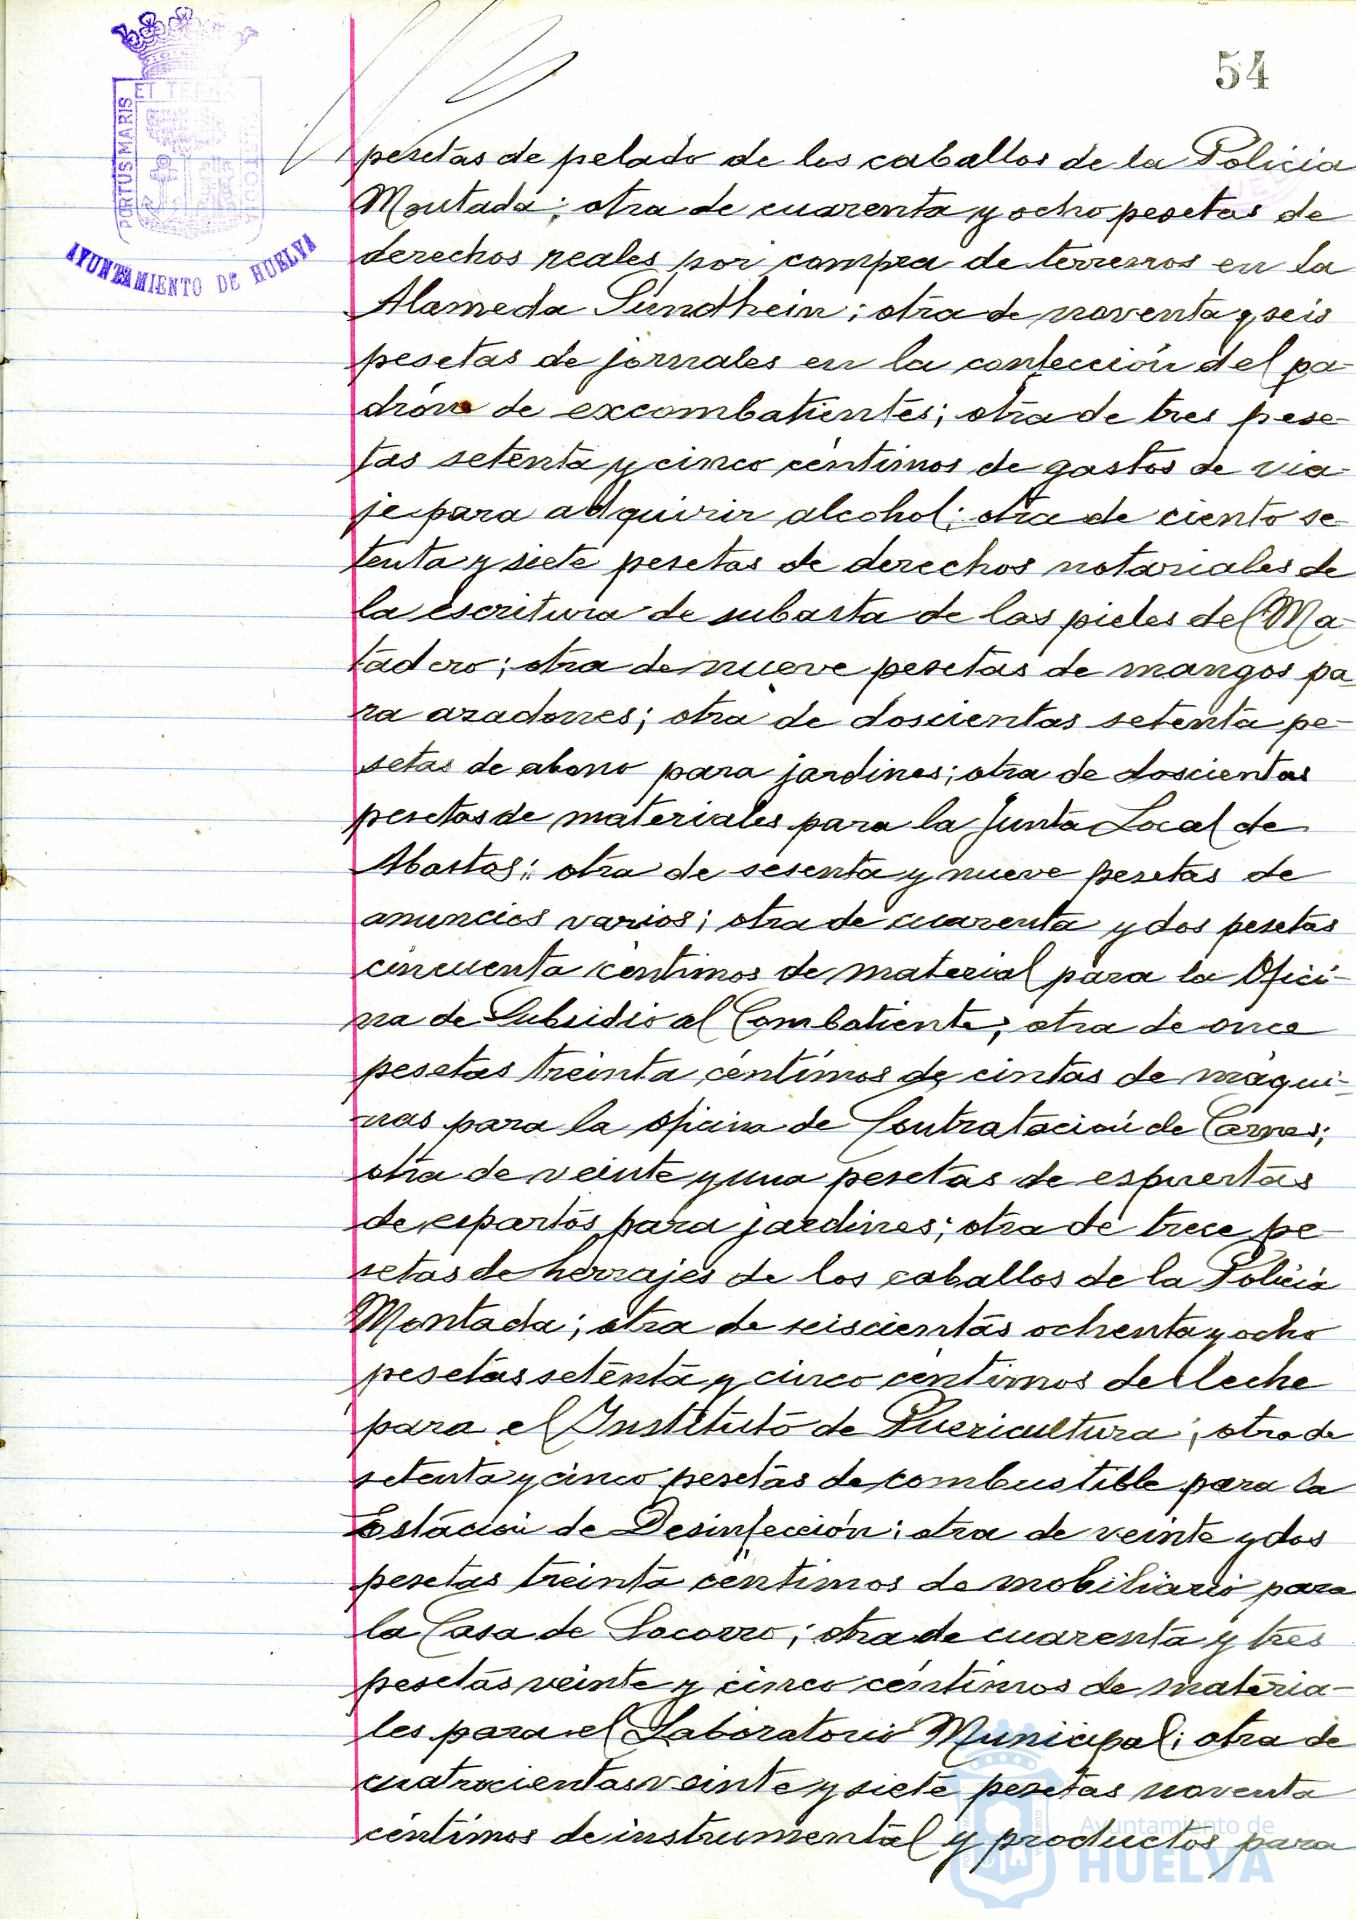 54
PORTUS MARIS
ET TERRÆ
CUSTODIA
AYUNTAMIENTO DE HUELVA
pesetas de pelado de los caballos de la Policia
Montada; otra de cuarenta y ocho pesetas de
derechos reales por compra de terrenos en la
Alameda Sundhein; otra de noventa y seis
pesetas de jornales en la confección del pa-
drón de excombatientes; otra de tres pese-
tas setenta y cinco céntimos de gastos de via-
je para adquirir alcohol; otra de ciento se-
tenta y siete pesetas de derechos notariales de
la escritura de subasta de las pieles del Ma-
tadero; otra de nueve pesetas de mangos pa-
ra azadones; otra de doscientas setenta pe-
setas de abono para jardines; otra de doscientas
pesetas de materiales para la Junta Local de
Abastos; otra de sesenta y nueve pesetas de
anuncios varios; otra de cuarenta y dos pesetas
cincuenta céntimos de material para la Ofici-
na de Subsidio al Combatiente; otra de once
pesetas treinta céntimos de cintas de máqui-
nas para la oficina de Contratación de Carnes;
otra de veinte y una pesetas de espuertas
de espartos para jardines; otra de trece pe-
setas de herrajes de los caballos de la Policía
Montada; otra de seiscientas ochenta y ocho
pesetas setenta y cinco céntimos de leche
para el Instituto de Puericultura; otra de
setenta y cinco pesetas de combustible para la
Estación de Desinfección; otra de veinte y dos
pesetas treinta céntimos de mobiliario para
la Casa de Socorro; otra de cuarenta y tres
pesetas veinte y cinco céntimos de materia-
les para el Laboratorio Municipal; otra de
cuatrocientas veinte y siete pesetas noventa
céntimos de instrumental y productos para
Ayuntamiento de
HUELVA